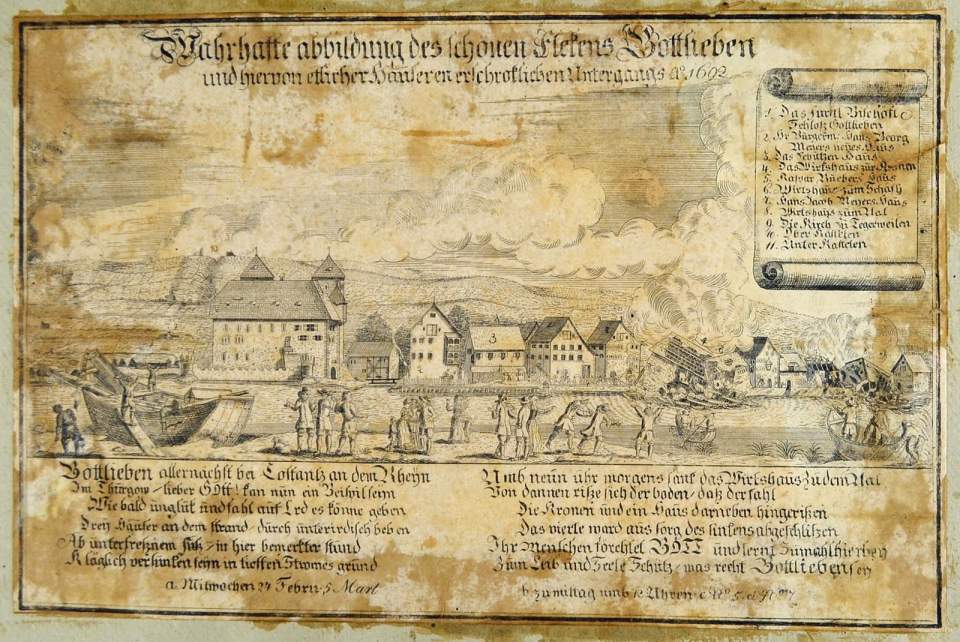 Wahrhaffte abbildung des schonen Flekens Gottlieben
und hiervon etlicher Häuseren erschroklichen Untergangs Aº 1692
1. Das fürstl Bischöfl
Schloß Gottlieben
2. Hr Burgerm. Hans Georg
Meyers neües Haus
3. Das Schützen Haus
4. Das Wirtshaus zur Kronen
5. Kaspar Rüebers Haus
6. Wirtshaus zum Schäfli
7. Hans Jacob Meyers Haus
8. Wirtshaus zum Aal
9. Die Kirch zu Tegerweilen
10. Ober Kastelen
11. Unter Kastelen
3
Gottlieben allernächst bei Costantz an dem Rheyn
Im Thurgow, lieber GOtt! kan nun ein Beispil seyn
Wie bald unglük und fahl auf Erd es könne geben
Dreÿ Häuser an dem strand, durch unterirdisch beben
Ab unterfreßnem in hier bemerkter stund
Kläglich versunken seyn in tieffen Stromes grund
a. Mitwochen 24 Febru. 5 Mart
Umb neün uhr morgens sank das Wirtshaus zu dem Aal
Von dannen riße sich der boden, daß der fahl
Die Kronen und ein Haus darneben hingerißen
Das vierte ward aus sorg des sinkens abgeschlißen
Ihr Menschen förchtet GOTT und lernt
Zum Leib und Seele Schutz, was recht Gottlieben sey
b zu mittag umb 12 Uhren c Nº 5.